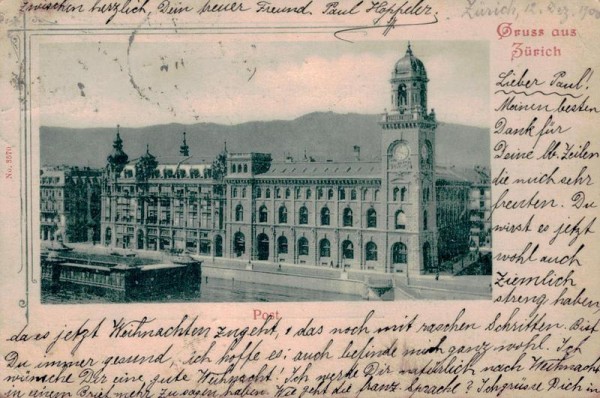 zwischen herzlich, Dein treuer Freund Paul Hoppeler.
Zürich, 12. Dez. 1900
Gruss aus
Zürich
Lieber Paul!
Meinen besten
Dank für
Deine lb. Zeilen
die mich sehr
freuten. Du
wirst es jetzt
wohl auch
ziemlich
streng haben,
No. 2570
Post
da es jetzt Weihnachten zugeht, & das noch mit raschen Schritten. Bist
Du immer gesund, ich hoffe es; auch befinde mich ganz wohl. Ich
wünsche Dir eine gute Weihnacht! Ich werde Dir natürlich nach Weihnacht
in einem Brief mehr zu sagen haben. Wie geht die franz. Sprache? Ich grüsse Dich in